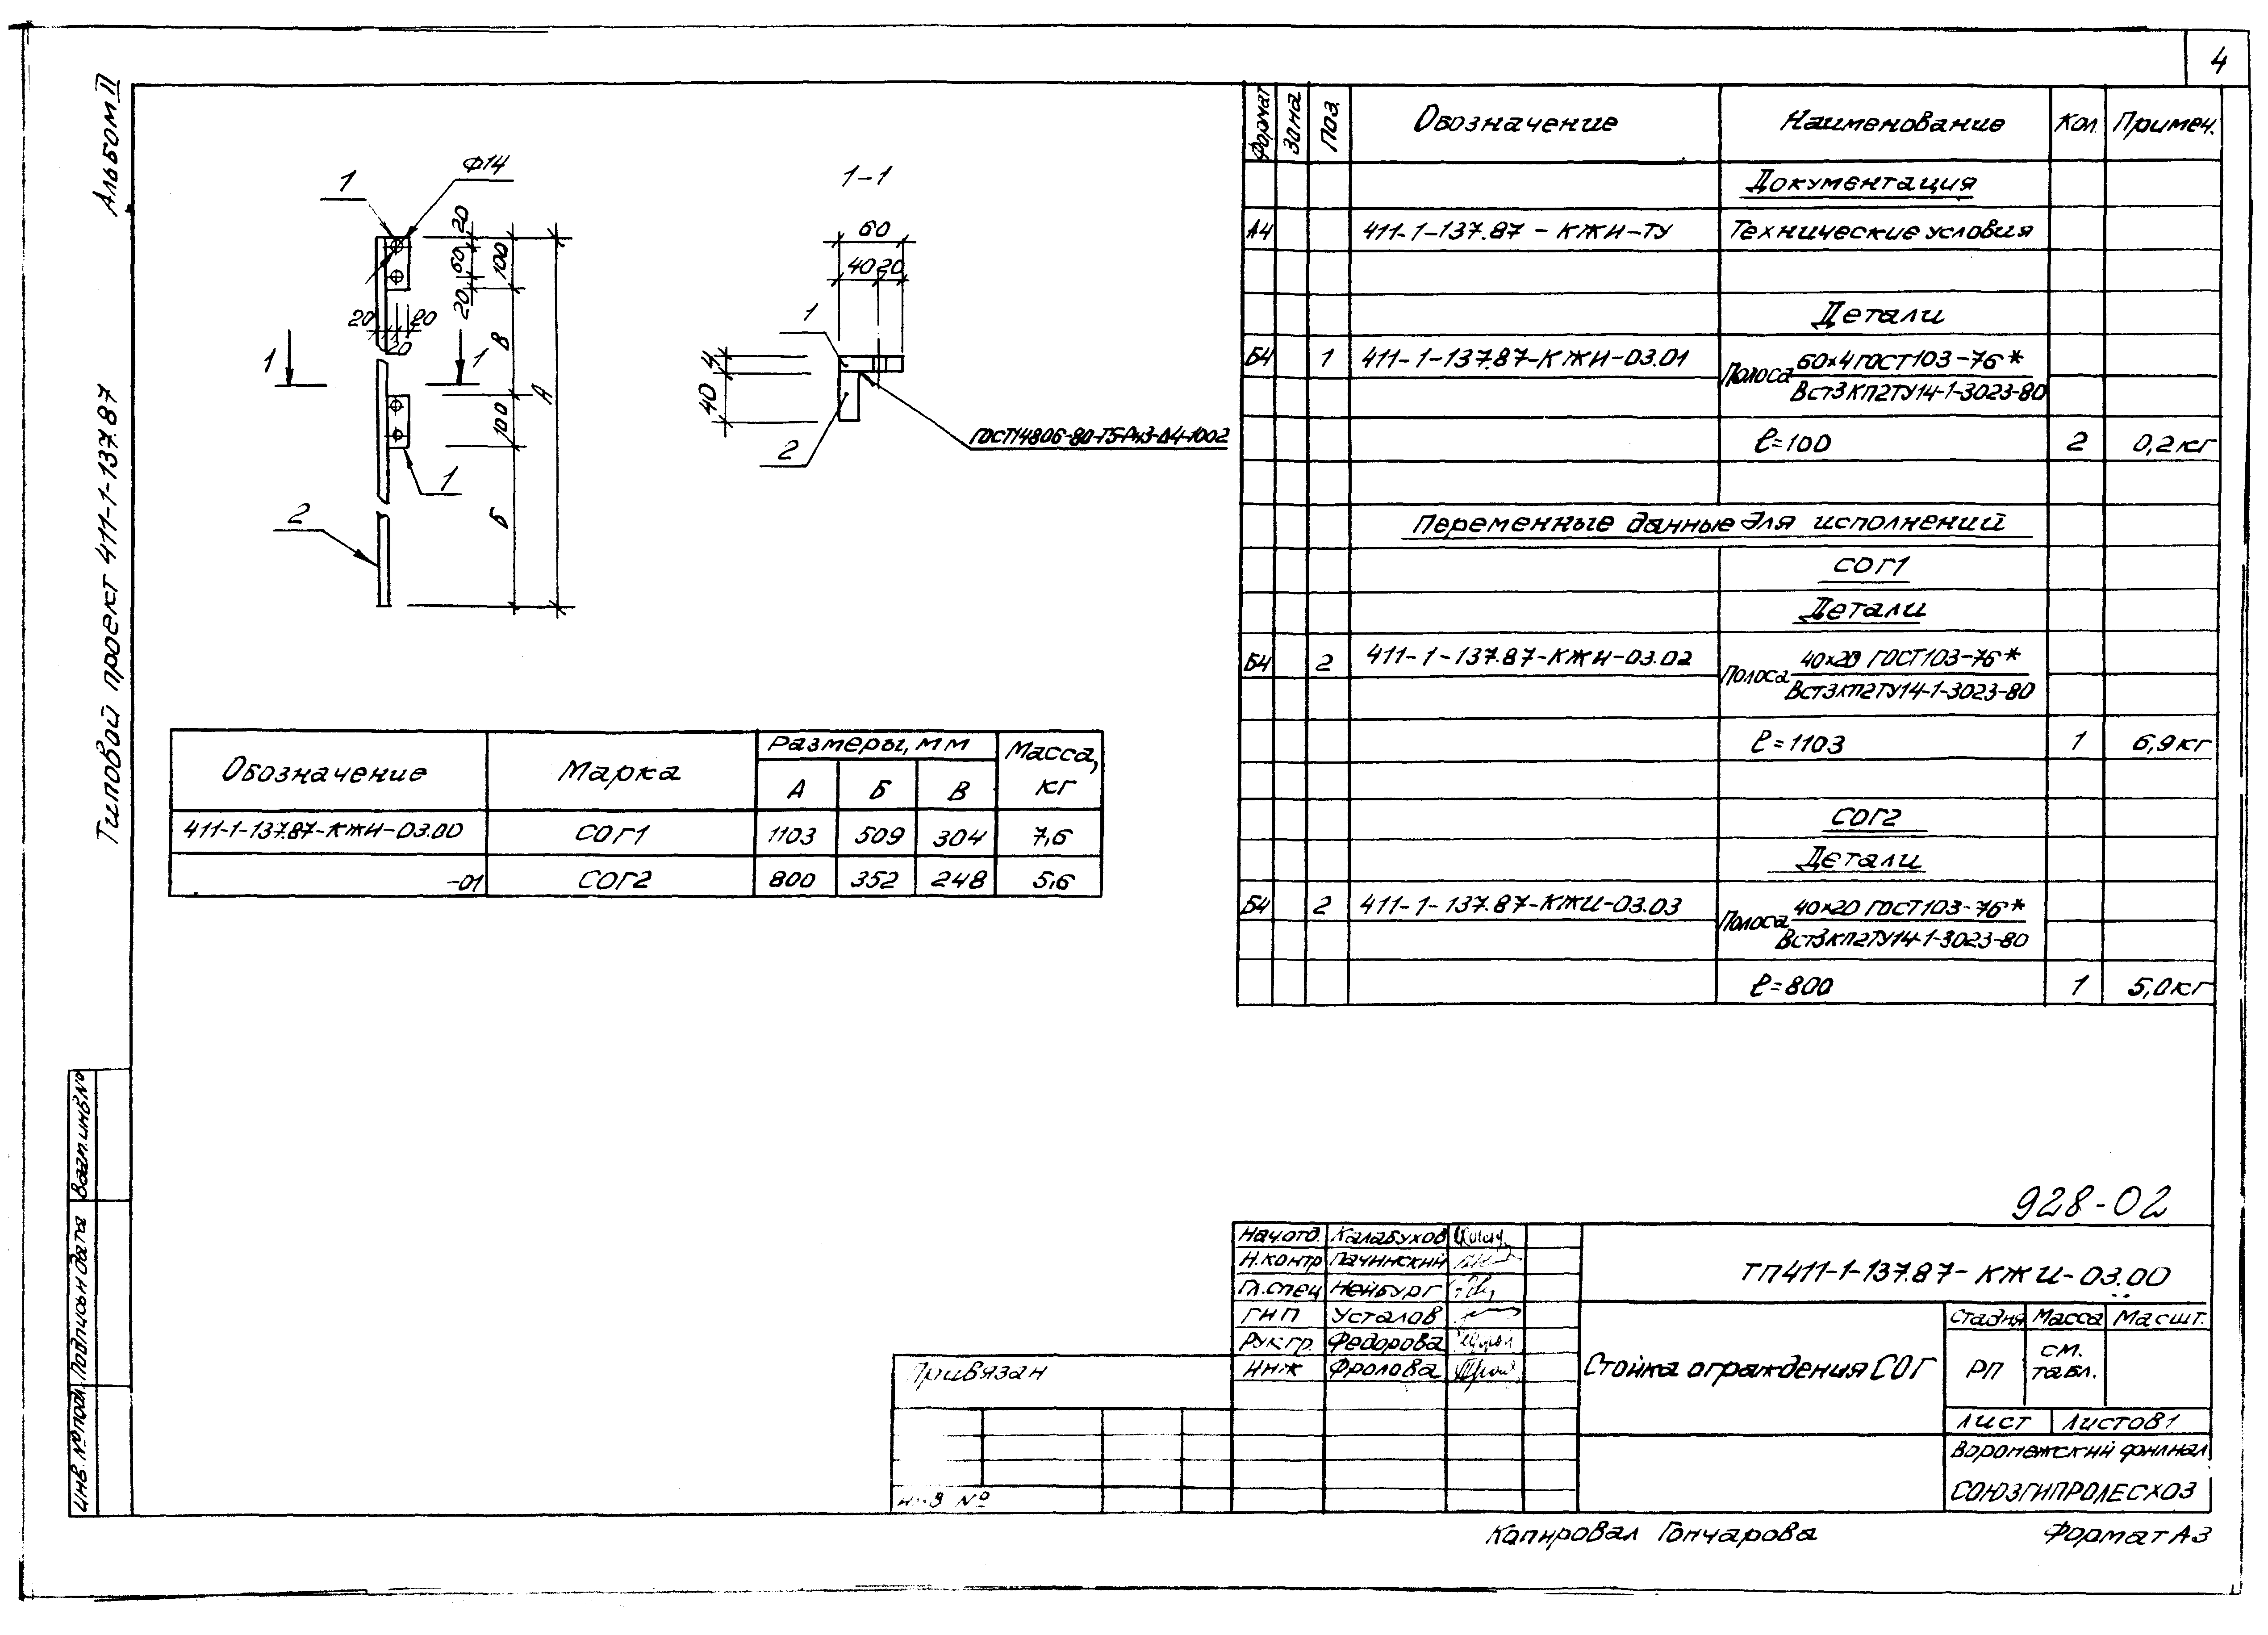 4
Альбом II
Типовой проект 411-1-137.87
1
Ф14
20
60
20
100
20
20
20
В
А
1
1
100
1
2
Б
1-1
60
40 20
1
4
40
2
ГОСТ14806-80-Т5-РиЗ-Δ4-100Z
Обозначение Марка Размеры, мм Масса, кг
А Б В
411-1-137.87-КЖИ-03.00 СОГ1 1103 509 304 7,6
-01 СОГ2 800 352 248 5,6
Формат Зона Поз. Обозначение Наименование Кол. Примеч.
Документация
А4 411-1-137.87-КЖИ-ТУ Технические условия
Детали
Б4 1 411-1-137.87-КЖИ-03.01 Полоса 60х4 ГОСТ103-76*
ВСт3КП2ТУ14-1-3023-80
ℓ=100 2 0,2кг
Переменные данные для исполнений
СОГ1
Детали
Б4 2 411-1-137.87-КЖИ-03.02 Полоса 40х20 ГОСТ103-76*
ВСт3КП2ТУ14-1-3023-80
ℓ=1103 1 6,9кг
СОГ2
Детали
Б4 2 411-1-137.87-КЖИ-03.03 Полоса 40х20 ГОСТ103-76*
ВСт3КП2ТУ14-1-3023-80
ℓ=800 1 5,0кг
928-02
Нач.отд. Калабухов
Н.контр Пачинский
Гл.спец Нейбург
ГИП Усталов
Рук.гр. Федорова
Инж Фролова
ТП411-1-137.87-КЖИ-03.00
Стойка ограждения СОГ
Стадия Масса Масшт.
РП см. табл.
Лист Листов1
Воронежский филиал
СОЮЗГИПРОЛЕСХОЗ
Привязан
Инв №
Взап.инв№
Подпись и дата
Инв.№подл.
Копировал Гончарова
Формат А3